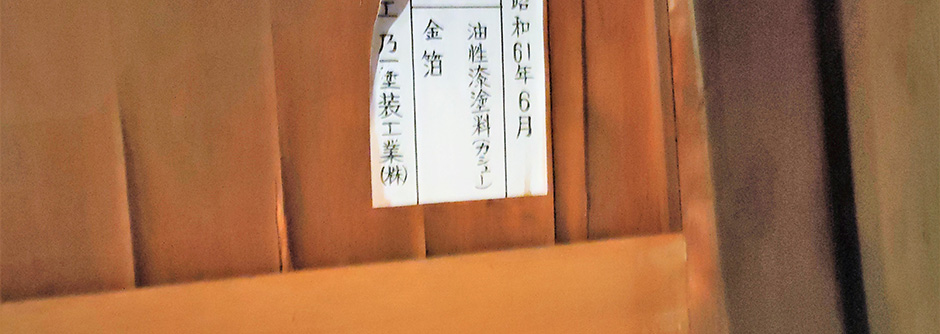 昭和61年6月
油性漆塗料(カシュー)
金箔
乃一塗装工業(株)